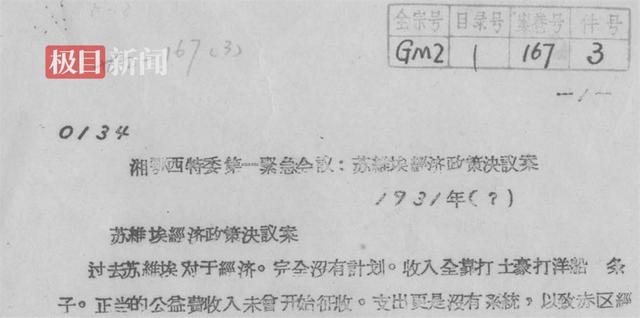 全宗号 目录号 案卷号 件号
GM2 1 167 3
极目新闻
167(3)
—1—
0134
湘鄂西特委第一緊急会议：苏維埃經济政策决议案
1931年(?)
苏維埃經济政策决议案
过去苏維埃对于經济。完全沒有計划。收入全靠打土豪打洋船 条
子。正当的公益費收入未曾开始征收。支出更是沒有系統，以致赤区經